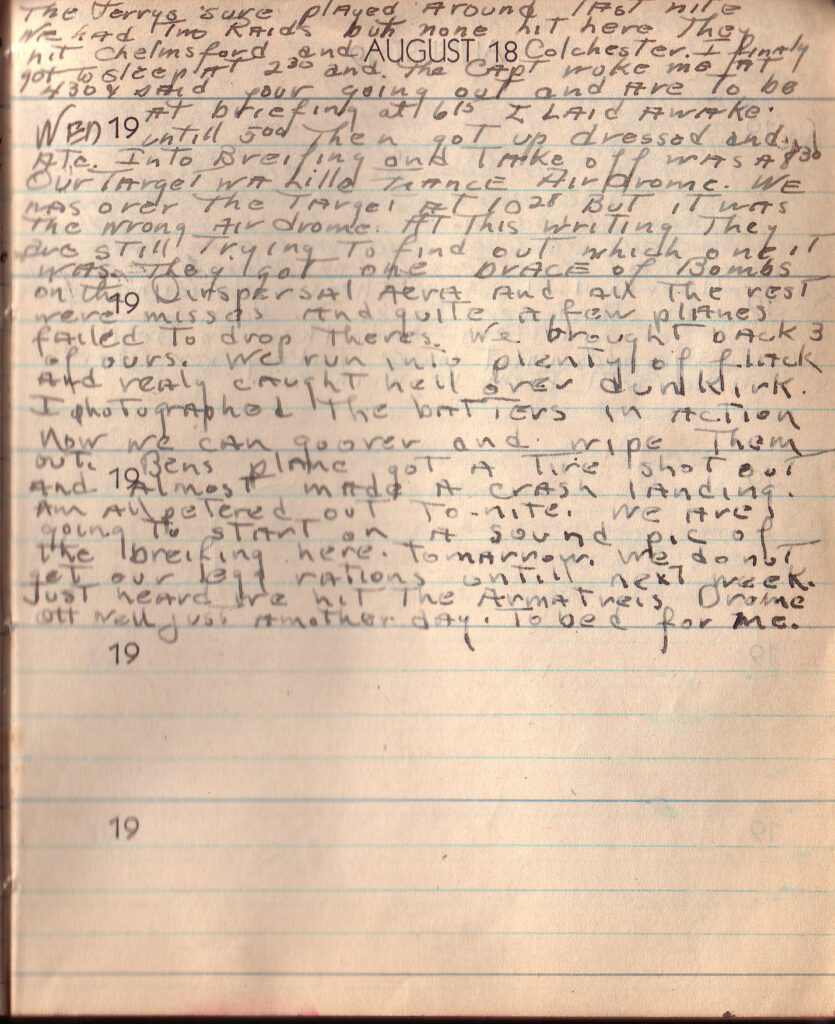 The Jerrys sure played Around last nite
We had Two Raids but none hit here They
hit Chelmsford and Colchester. I finaly
AUGUST 18
got to sleep AT 2 30 and. The Capt woke me AT
430 & said your going out and Are to be
AT briefing at 6 15 I LAid AwAke.
WED 19 untill 5 00 Then got up dressed and
Ate. Into Breifing and TAke off was AT 8 30
Our Target wA Lille France AirDrome. We
was over The TArgeT AT 10 28 BuT iT was
The wrong Airdrome. AT This writing They
Are still Trying To find out which one it
was. They got one brace of Bombs
on the Dispersal Aera And all The rest
19
were misses And quite A few planes
failed To drop Theres. We brought back 3
of ours. We run into plenty of flack
And realy caught hell over dunkirk.
I photographed The batterys in AcTion
Now we can go over and wipe Them
out. Bens plane got A Tire shot out
19
And Almost made A crash landing.
Am All petered out To-nite. We Are
going to start on A sound pic of
The breifing here. Tomarrow. We do not
get our egg rations untill next week.
Just heard we hit The Drome
Oh well just Another day. To bed for me.
19
19